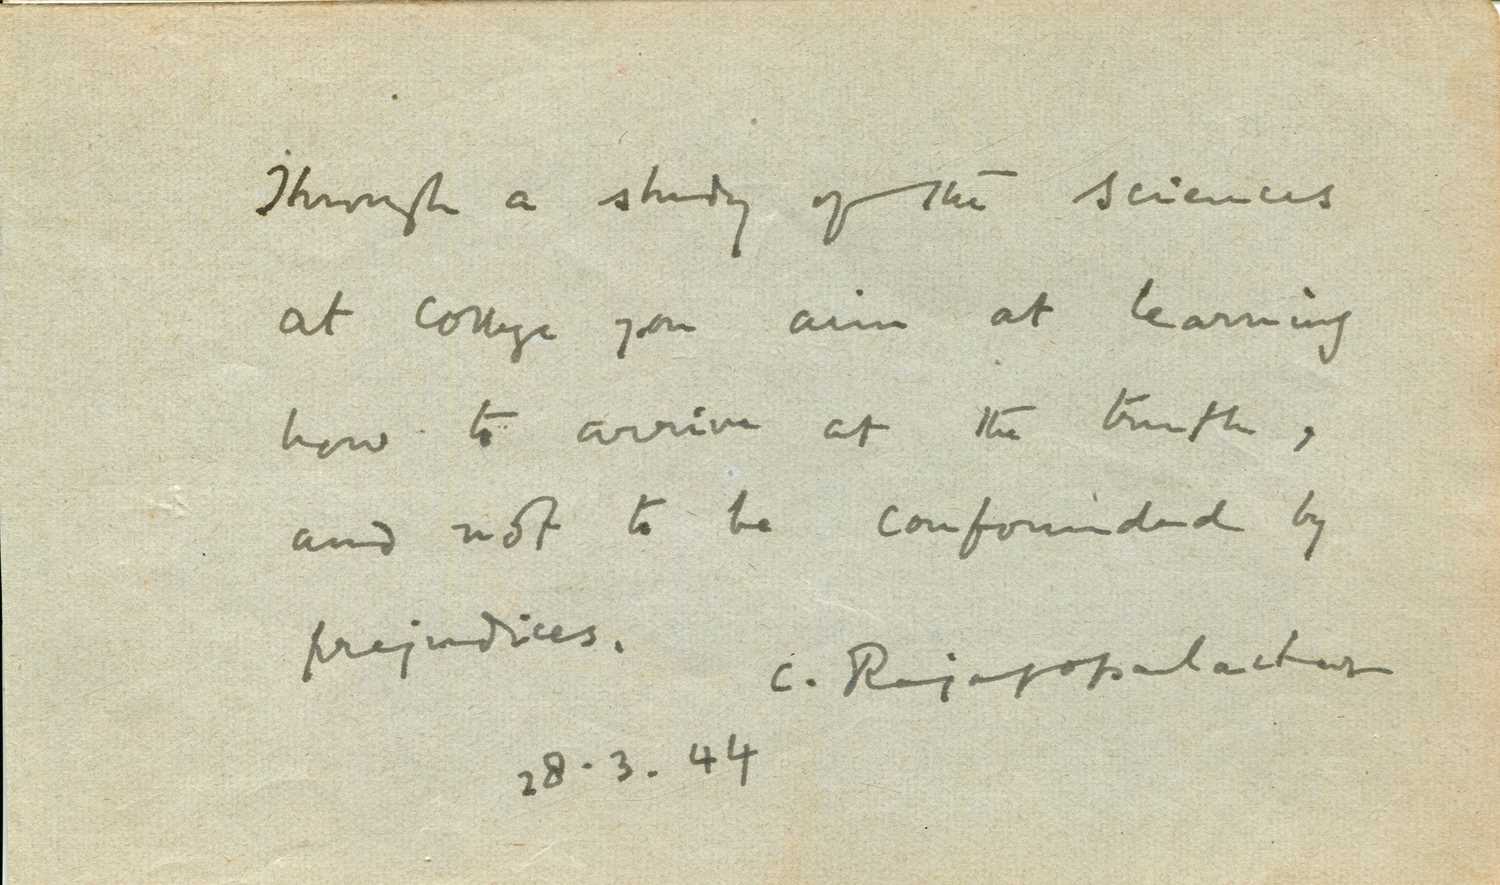 Through a study of the sciences
at college you aim at learning
how to arrive at the truth,
and not to be confounded by
prejudices.
C. Rajagopalachari
28.3.44